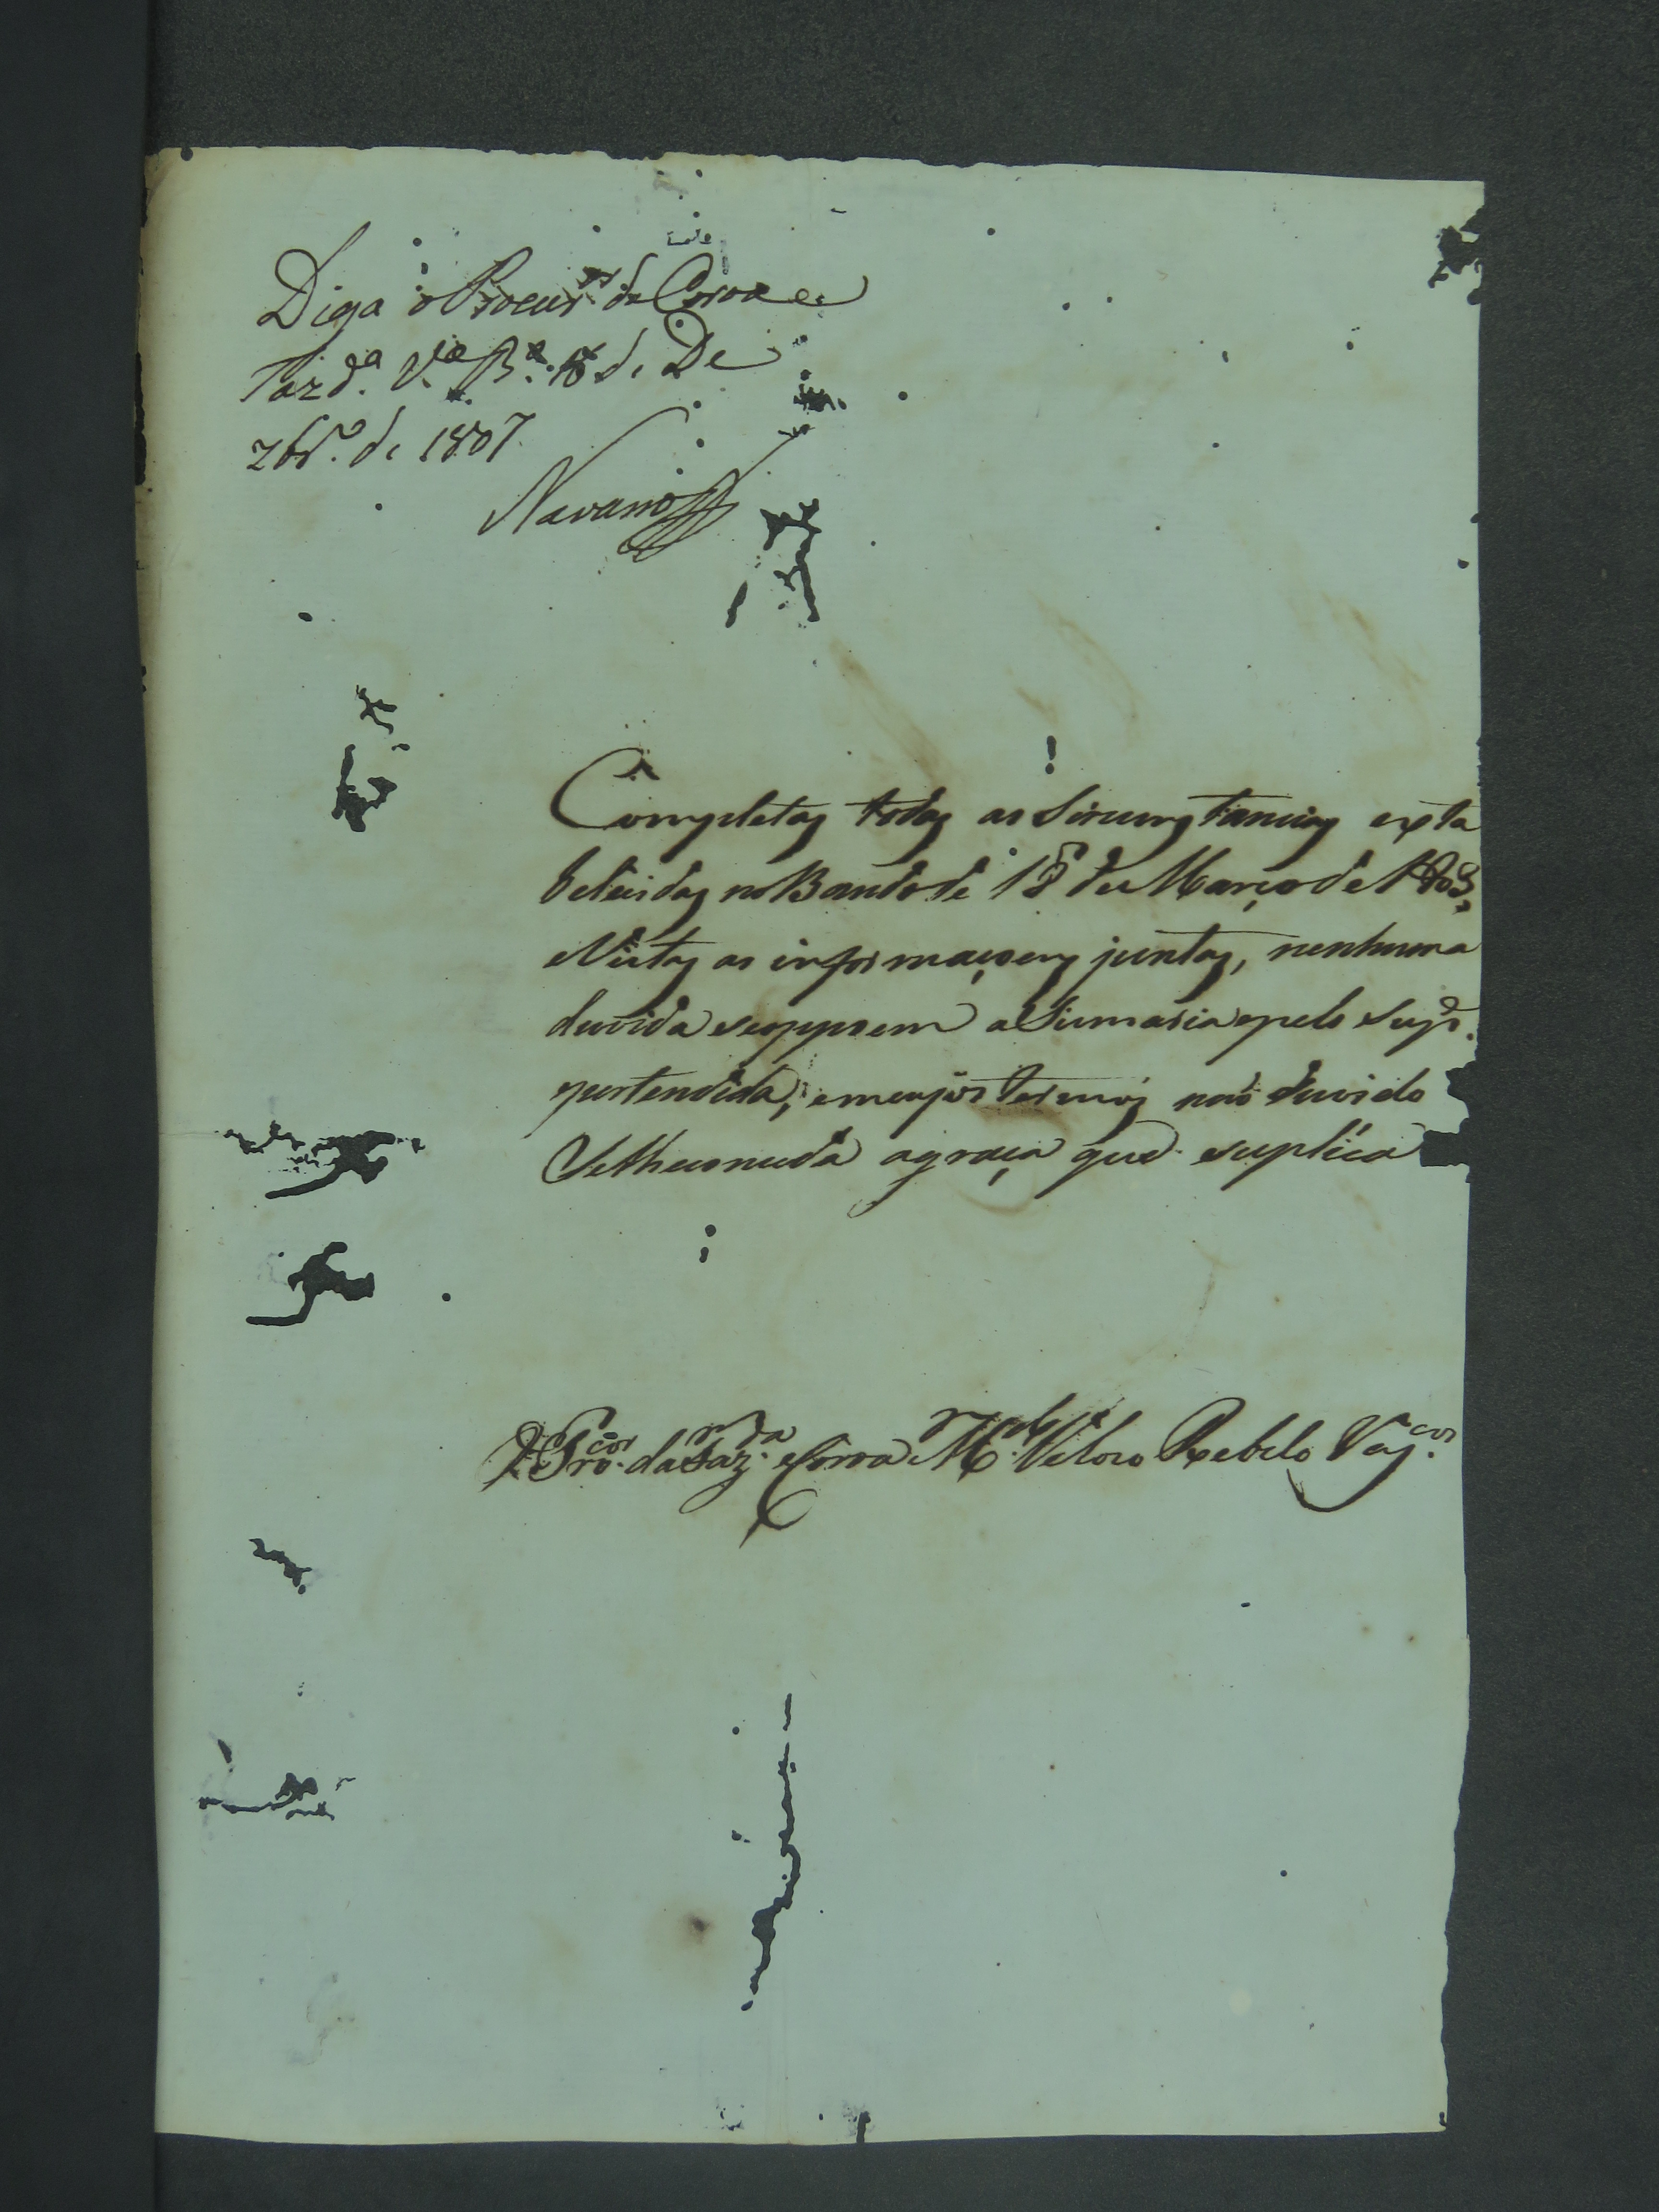 Diga o Procur.or da Coroa e
Faz.da V.a B.a 18 de De
zbr.o de 1807
Navarro
Completas todas as Sircumstancias exta
beleisdas no Bando de 18 de Março de
e Vistas as informaçoens juntas, nenhuma
duvida se oppoem a Sismaria pelo sup.e
pertendida, em cujos termos naõ duvido
Selhe conceda a graça que suplica
O Pro.cor da Faz.da e Coroa M.el Veloso Rebelo Vas.cos